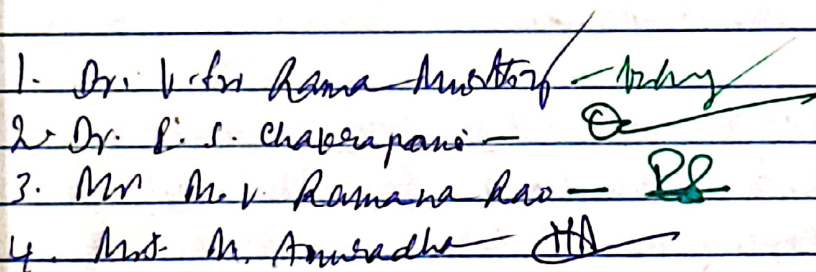 1. Dr. V. Sri Rama Murthy -
2. Dr. P. S. Chakrapani -
3. Mr M. V. Ramana Rao -
4. Mrs. M. Anuradha